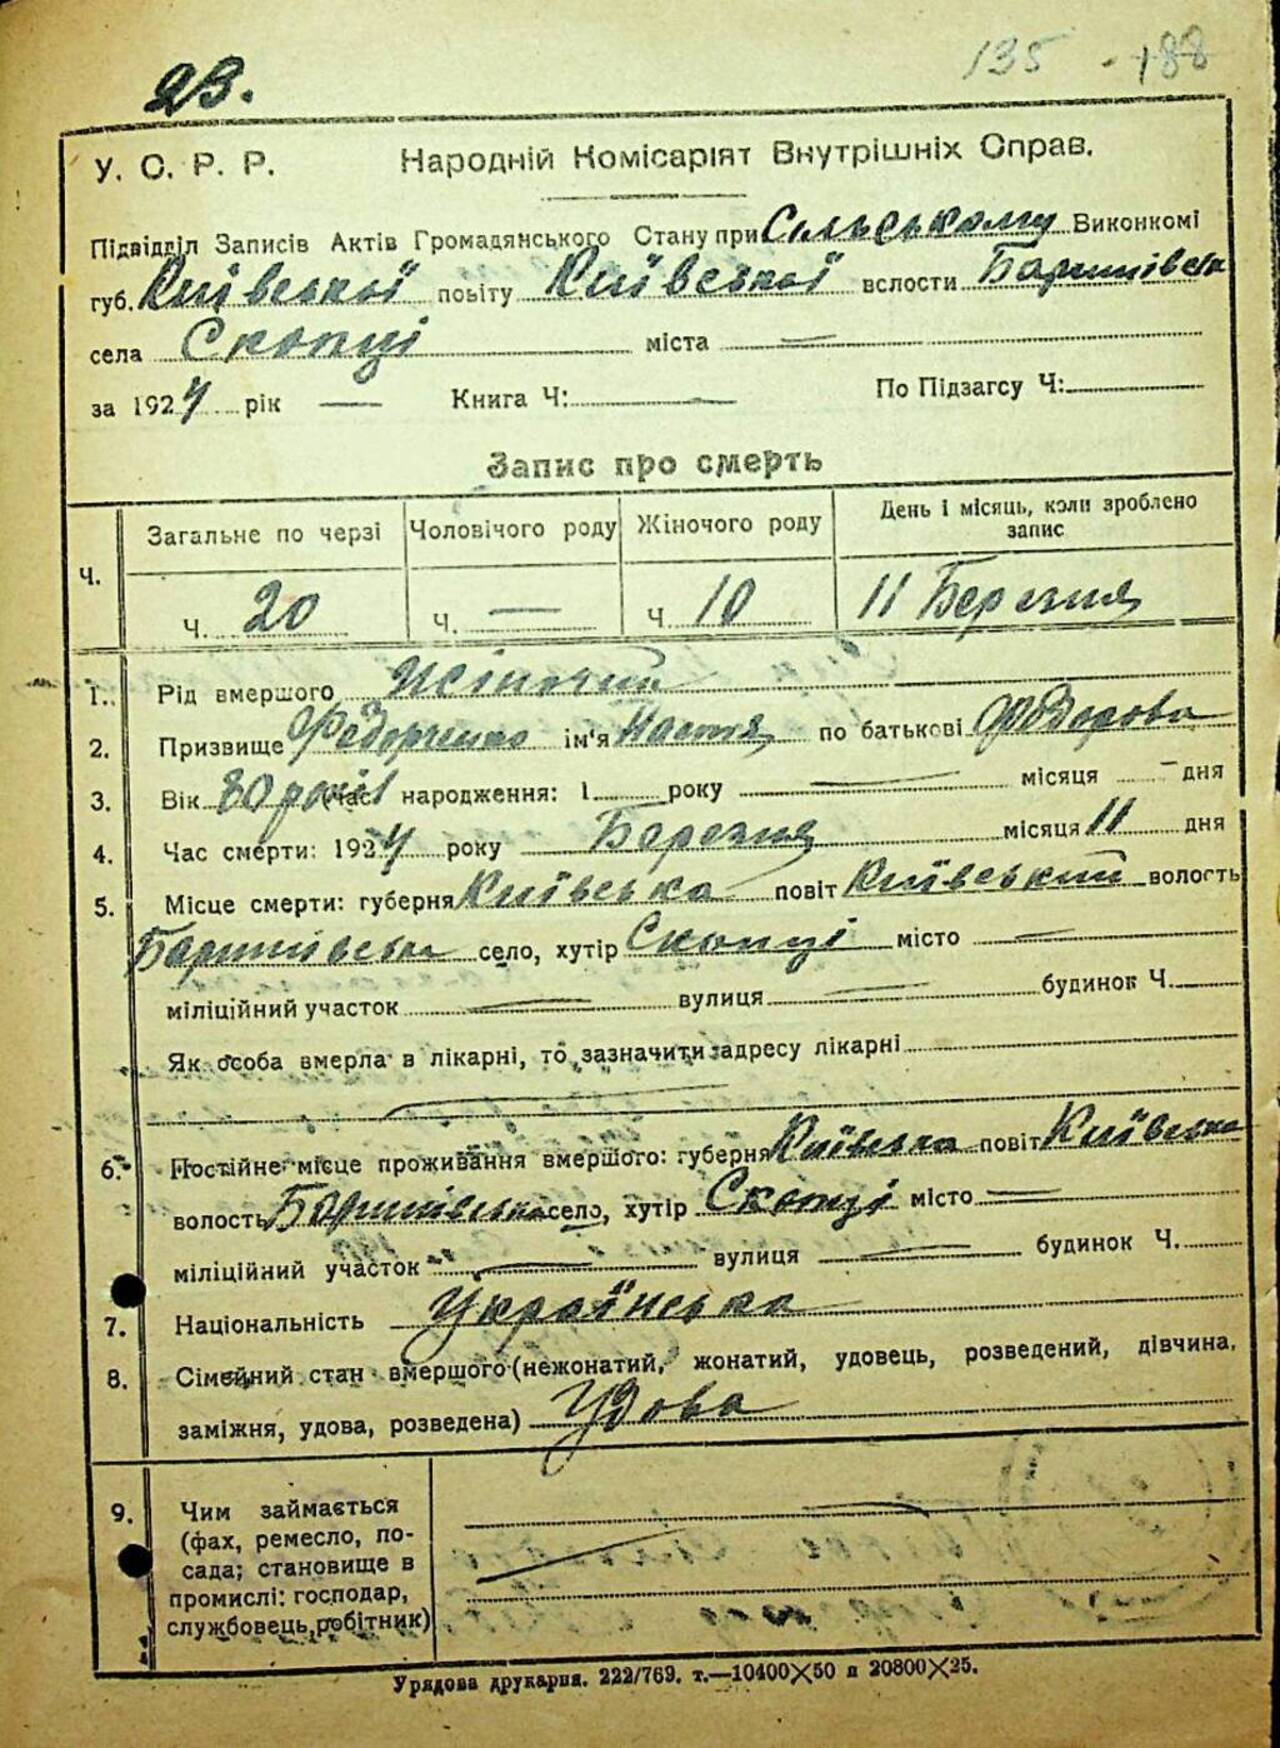 23.
135 188
У. С. Р. Р. Народній Комісаріят Внутрішніх Справ.
Підвідділ Записів Актів Громадянського Стану при Сельському Виконкомі
губ. Київської повіту Київської вслости Баришівськ
села Скопці міста —
за 1924 рік — Книга Ч: По Підзагсу Ч:
Запис про смерть
Ч. Загальне по черзі Чоловічого роду Жіночого роду День і місяць, коли зроблено запис
Ч. 20 Ч. — Ч. 10 11 Березня
1. Рід вмершого Жіночий
2. Призвище Федорченко ім'я Настя по батькові Федорова
3. Вік 80 років (час народження: 1 року — місяця — дня
4. Час смерти: 1924 року Березня місяця 11 дня
5. Місце смерти: губерня Київська повіт Київський волость
Баришівська село, хутір Скопці місто —
міліційний участок — вулиця — будинок Ч.
Як особа вмерла в лікарні, то зазначити адресу лікарні
6. Постійне місце проживання вмершого: губерня Київська повіт Київська
волость Баришівська село, хутір Скопці місто —
міліційний участок — вулиця — будинок Ч.
7. Національність Українська
8. Сімейний стан вмершого (нежонатий, жонатий, удовець, розведений, дівчина,
заміжня, удова, розведена) Удова
9. Чим займається
(фах, ремесло, по-
сада; становище в
промислі: господар,
службовець, робітник)
Урядова друкарня. 222/769. т.—10400×50 п 20800×25.